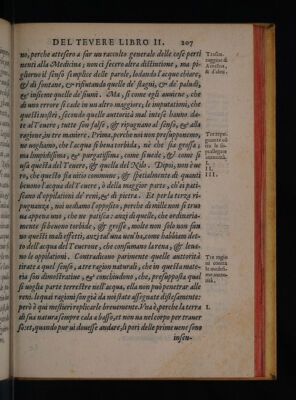 DEL TEVERE LIBRO II. 207
no, perche attesero a far un raccolto generale delle cose perti
nenti alla Medicina; non ci fecero altra distintione, ma pi-
gliorno il senso semplice delle parole, lodando l'acque chiare,
& di fontane, & rifiutando quelle de' stagni, & de' paludi,
& insieme quelle de' fiumi. Ma, si come egli auuiene, che
di uno errore si cade in un altro maggiore; le imputationi, che
questi nostri, secondo quelle auttorità mal intese hanno da-
te al Teuere, tutte son false, & repugnano al senso, & alla
ragione in tre maniere. Prima, perche noi non presupponemo,
ne uogliamo, che l'acqua si beua torbida, nè che sia grossa;
ma limpidissima, & purgatissima, come si uede, & come si
usa quella del Teuere, & quella del Nilo. Dopoi, non è ue
ro, che quello sia uitio commune, & spetialmente di quanti
beuono l'acqua del Teuere, ò della maggior parte, ch'ei pati-
scano d'oppilationi de' reni, & di pietra. Et per la terza ri-
pugnanza, noi uediamo l'opposito, perche di mille non si troua
ua appena uno, che ne patisca: anzi di quelle, che ordinaria-
mente si beuono torbide, & grosse, molte non solo non fan
no questi mali effetti, anzi hal' una uirtù, come habbiam det-
to dell'acqua del Teuerone, che consumano la rena, & leua-
no le oppilationi. Contradicono parimente quelle auttorità
tirate a quel senso, altre ragion naturali, che in questa mate-
ria son dimostratiue, & concludono, che, presupposta qual
si uoglia parte terrestre nell'acqua, ella non può penetrar alle
reni. le quai ragioni son già da noi state assegnate distesamente:
però è qui mestieri replicarle breuemente. Vna è, perche la terra
di sua natura sempre cala a basso, et non ua nel corpo per trauer
so: et, quando pur ui douesse andare, li pori delle prime uene sono
insen-
Trascu-
raggine di
Auicenna,
& d'altri.
Tre repu-
gnanze co
I.
III.
Tre ragio
ni contra
I.